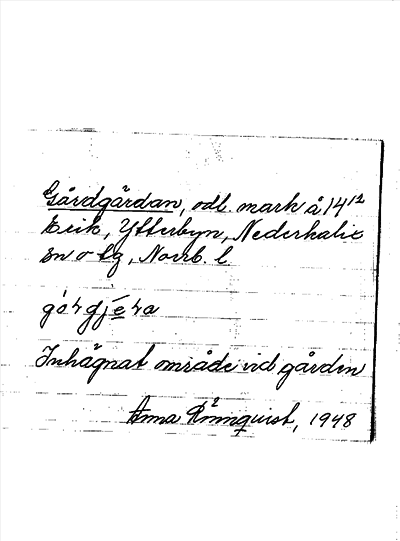 Gårdgärdan, odl. mark å 14¹²
Erik, Ytterbyn, Nederkalix
sn o tg, Norrb. l
Inhägnat område vid gården
Anna Rönnquist, 1948